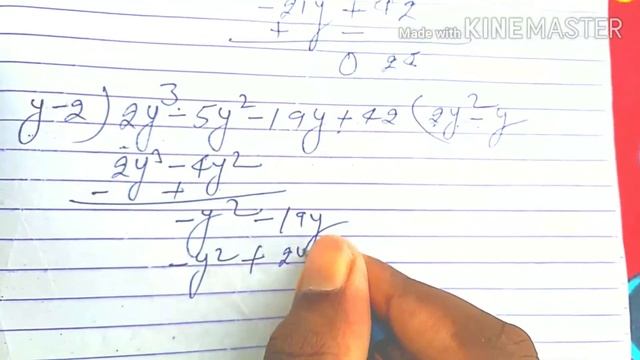 -21y + 42
+ -
0
Made with KINEMASTER
y-2) 2y³ - 5y² - 19y + 42 (2y² - y
2y³ - 4y²
- +
-y² - 19y
-y² + 2y